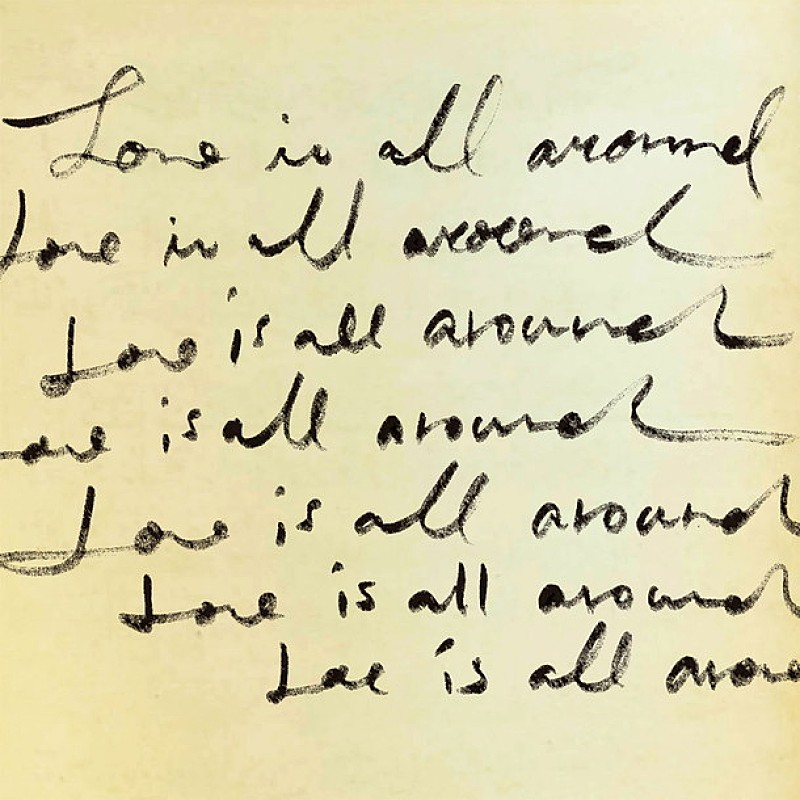 Love is all around
Love is all around
Love is all around
ove is all around
Love is all around
Love is all around
Love is all aroun